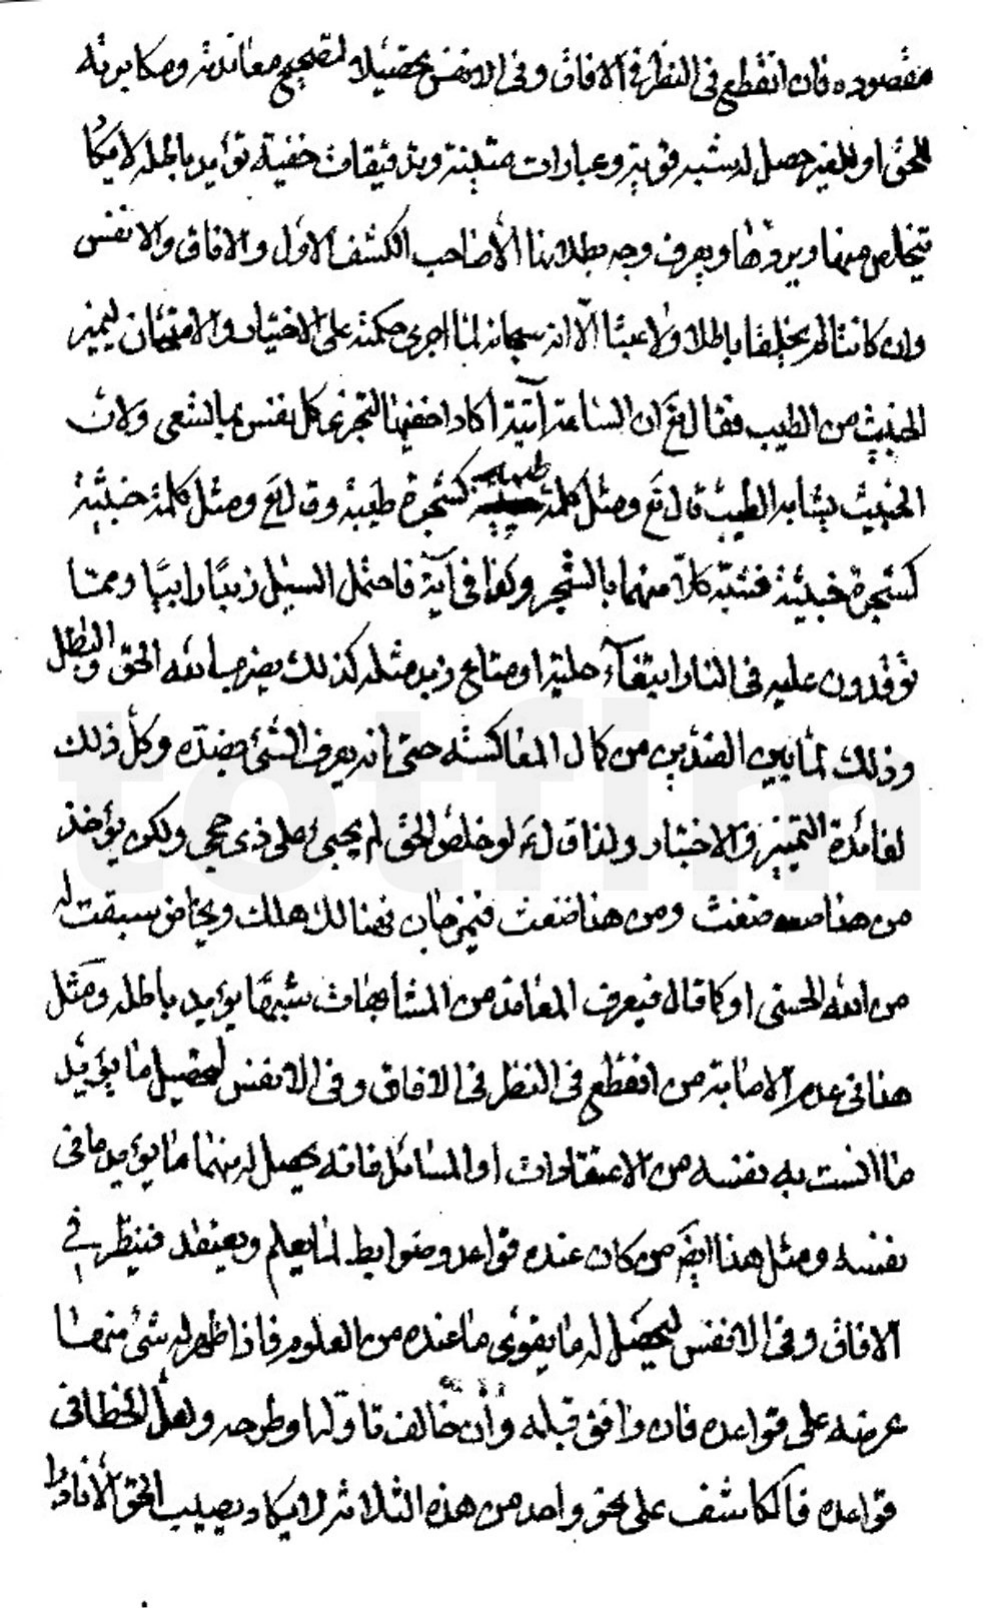 مقصوده فان انقطع فى النظر فى الافاق وفى الانفس تحصيلا لتصحيح معاندته ومكابرته
للحق او للغير حصل له شبه قوية وعبارات متينة وتدقيقات خفية تؤيد باطله لا يكاد
يتخلص منها ويردها ويعرف وجه بطلانها الا صاحب الكشف الاول والافاق والانفس
وان كانتا لم يخلقا باطلا ولا عبثا الا انه سبحانه لما اجرى حكمته على الاختبار والامتحان ليميز
الخبيث من الطيب فقال تع ان الساعة آتية اكاد اخفيها لتجزى كل نفس بما تسعى ولان
الخبيث يشابه الطيب قال تع ومثل كلمة طيبة كشجرة طيبة وقال تع ومثل كلمة خبيثة
كشجرة خبيثة فشبه كلا منهما بالشجر وكما فى آية فاحتمل السيل زبدا رابيا ومما
توقدون عليه فى النار ابتغاء حلية او متاع زبد مثله كذلك يضرب الله الحق والباطل
وذلك لما بين الضدين من كمال المعاكسة حتى انه يعرف الشئ بضده وكل ذلك
لفائدة التمييز والاختبار ولذا قال ع لو خلص الحق لم يخف على ذى حجى ولكن يؤخذ
من هذا ضغث ومن هذا ضغث فيمزجان فهنالك هلك ونجا من سبقت له
من الله الحسنى او كما قال فيعرف المعاند من المتشابهات شبها يؤيد باطله ومثل
هذا فى عدم الاصابة من انقطع فى النظر فى الافاق وفى الانفس لتحصيل ما يؤيد
ما انست به نفسه من الاعتقادات او المسائل فانه يحصل له منهما ما يؤيد ما فى
نفسه ومثل هذا ايض من كان عنده قواعد وضوابط لما يعلم ويعتقد فينظر فى
الافاق وفى الانفس ليحصل له ما يقوى ما عنده من العلوم فاذا ظهر له شئ منهما
عرضه على قواعده فان وافق قبله وان خالف تاوله او طرحه ولعل الخطا فى
قواعده فالكاشف على نحو واحد من هذه الثلاثة لا يكاد يصيب الحق الا نادرا